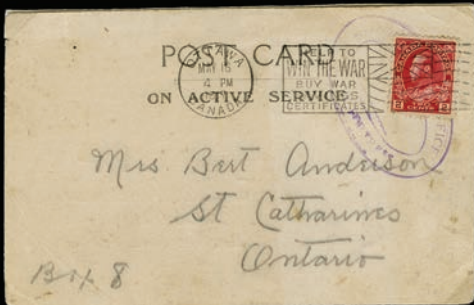 POST CARD
ON ACTIVE SERVICE
OTTAWA
MAY 16
4 PM
CANADA
HELP TO
WIN THE WAR
BUY WAR
CERTIFICATES
CANADA POSTAGE
2 CENTS 2
OFFICE
Mrs Bert Anderson
St Catharines
Ontario
Box 8